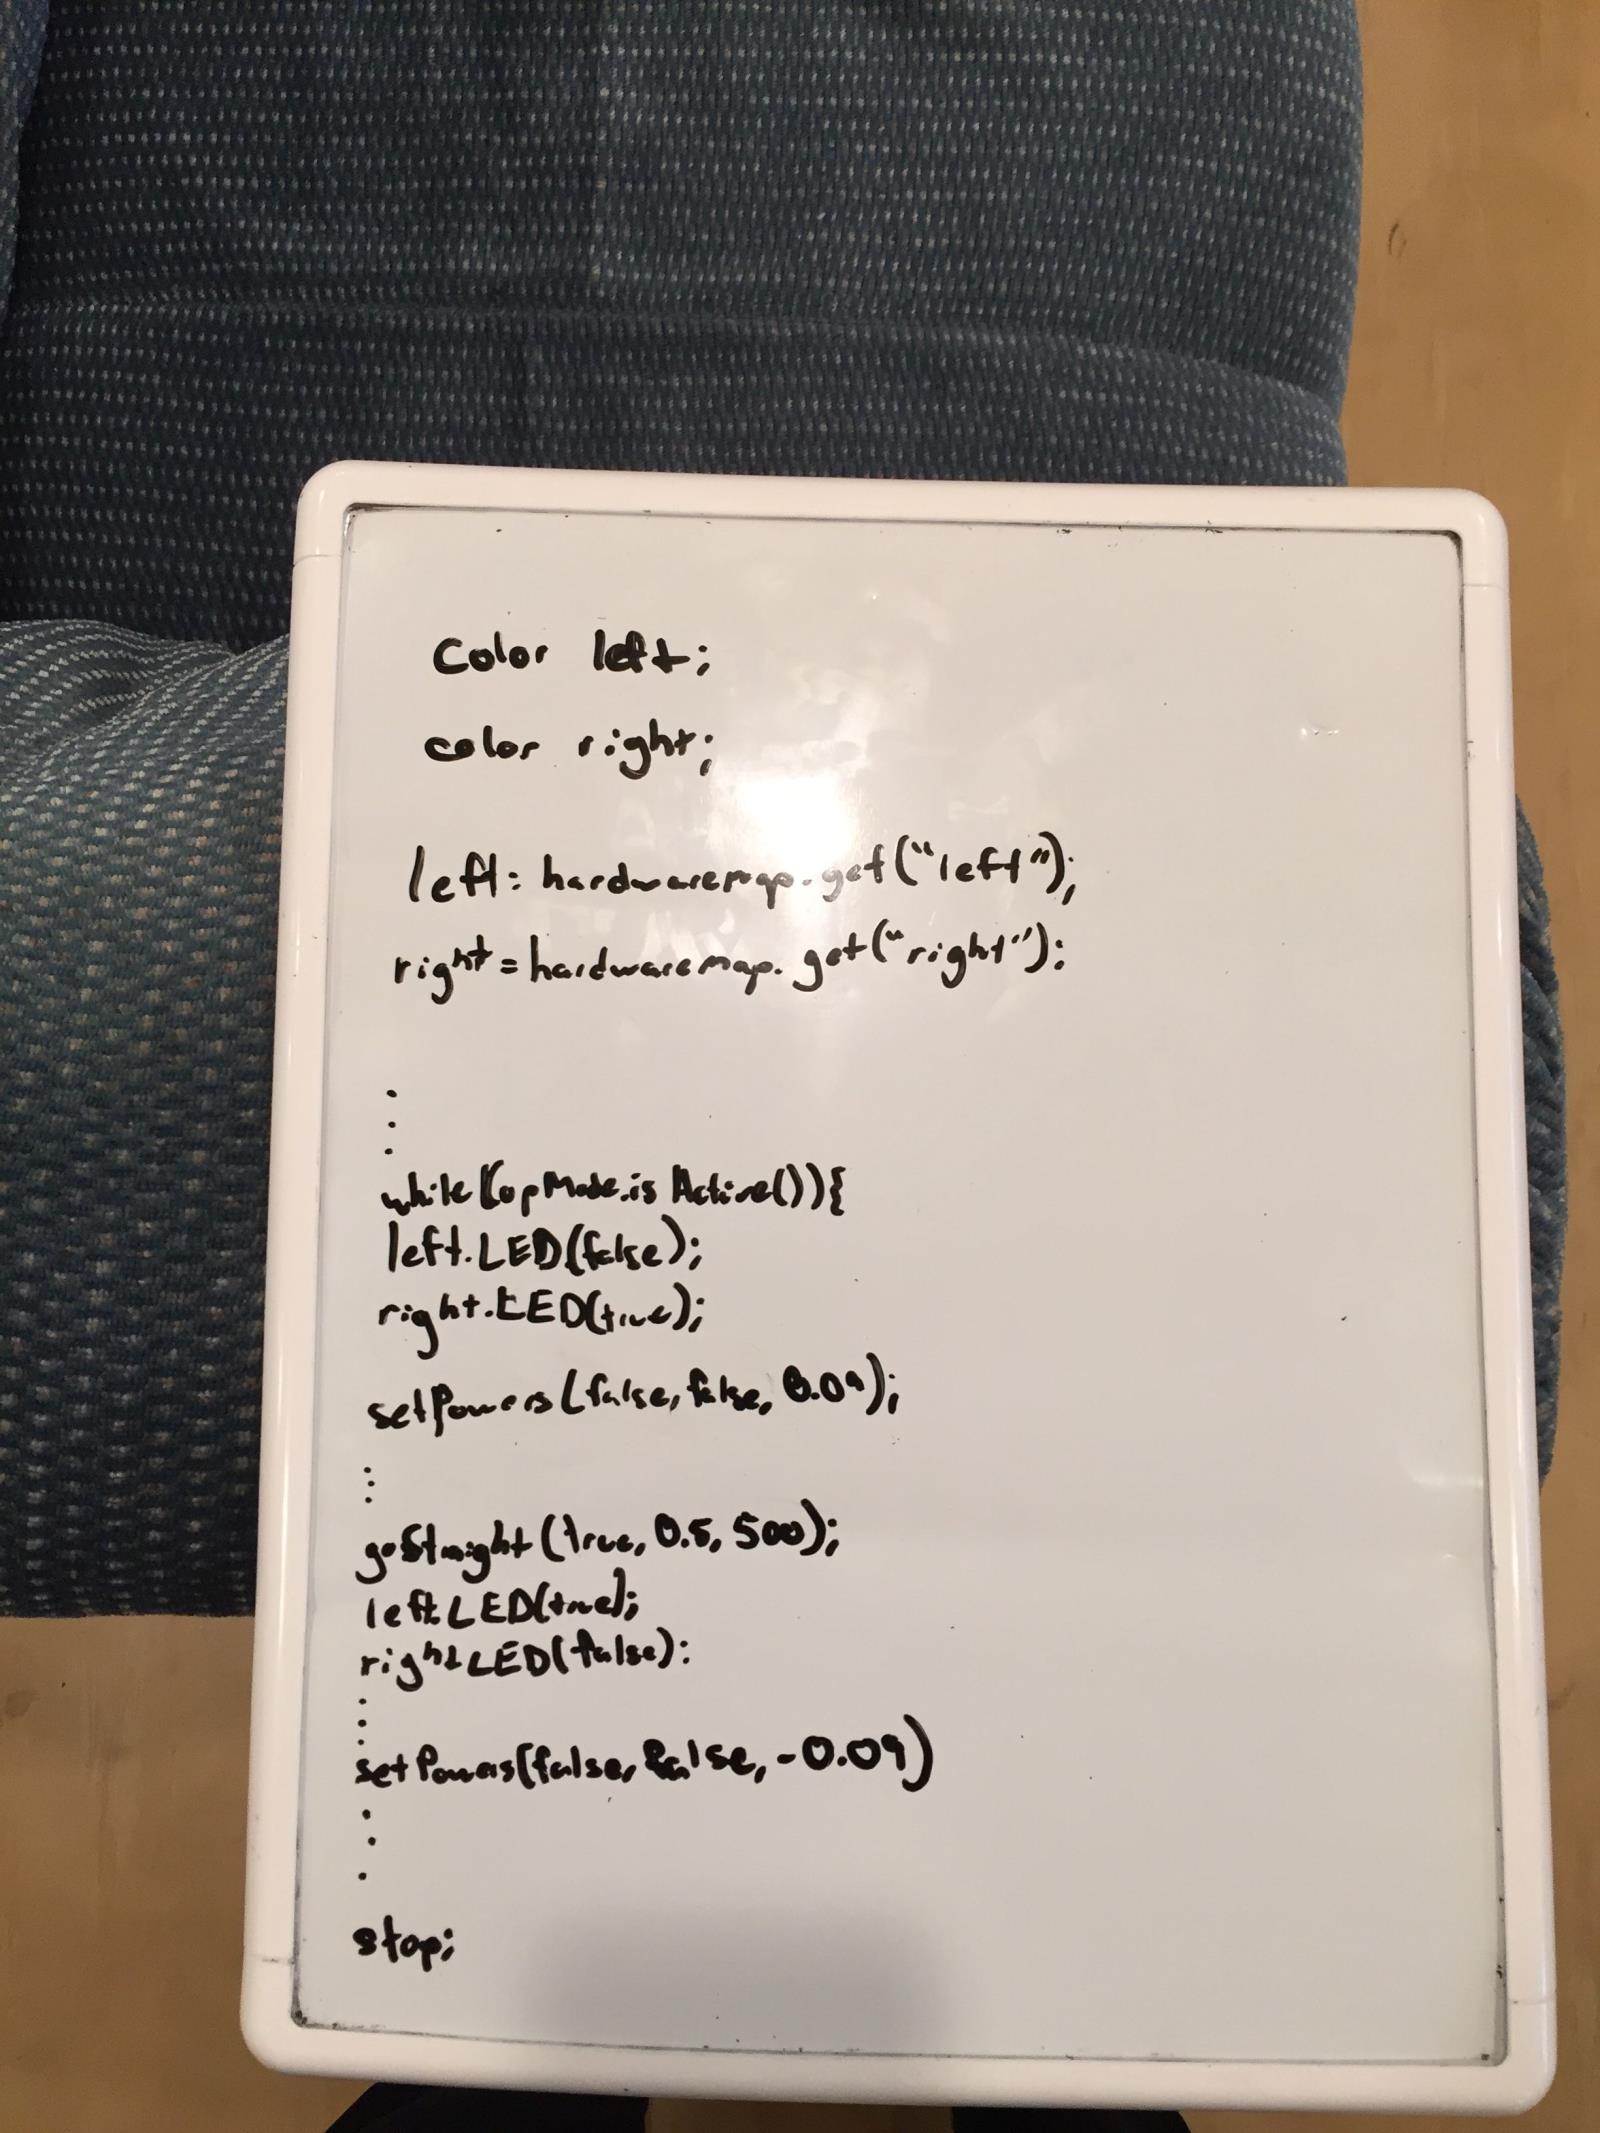 Color left;
color right;
left= hardwaremap.get("left");
right=hardwaremap.get("right");
.
.
.
while(opMode.isActive()){
left.LED(false);
right.LED(true);
setPowers(false, false, 0.09);
.
.
.
goStraight(true, 0.5, 500);
left.LED(true);
right.LED(false);
.
.
.
setPowers(false, false, -0.09)
.
.
.
stop;